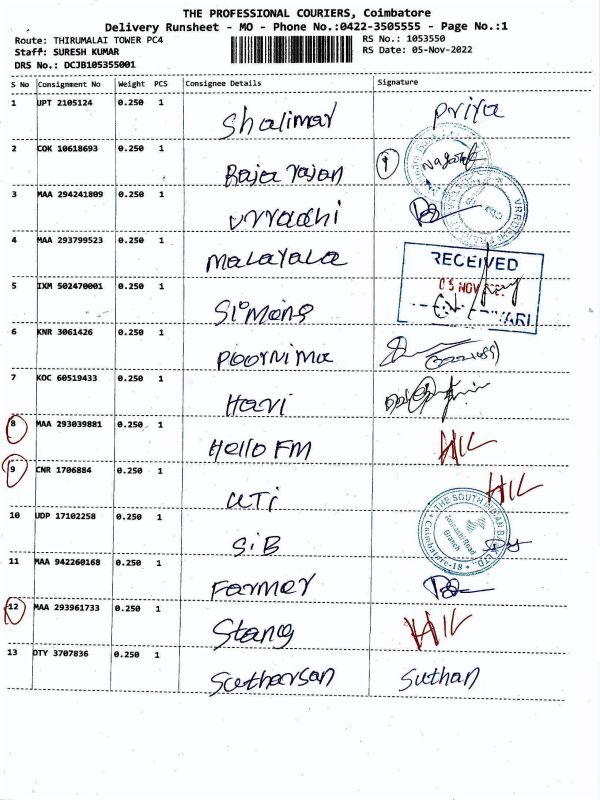 THE PROFESSIONAL COURIERS, Coimbatore
Delivery Runsheet - MO - Phone No.:0422-3505555 - Page No.:1
Route: THIRUMALAI TOWER PC4 RS No.: 1053550
Staff: SURESH KUMAR RS Date: 05-Nov-2022
DRS No.: DCJB105355001
S No Consignment No Weight PCS Consignee Details Signature
1 UPT 2105124 0.250 1 Shalimar Priya
2 COK 10618693 0.250 1 Raja rajan
3 MAA 294241809 0.250 1 vrradhi
4 MAA 293799523 0.250 1 Malayala RECEIVED
5 IXM 502470001 0.250 1 Simens 05 NOV
6 KNR 3061426 0.250 1 Poornima
7 KOC 60519433 0.250 1 Havi
8 MAA 293039881 0.250 1 Hello FM H/L
9 CNR 1706884 0.250 1 UTi H/L
10 UDP 17102258 0.250 1 SiB THE SOUTH INDIAN BANK LTD. Avinashi Road Branch Coimbatore-18
11 MAA 942260168 0.250 1 Farmer
12 MAA 293961733 0.250 1 Stang H/L
13 DTY 3707836 0.250 1 Sutharsan Suthan